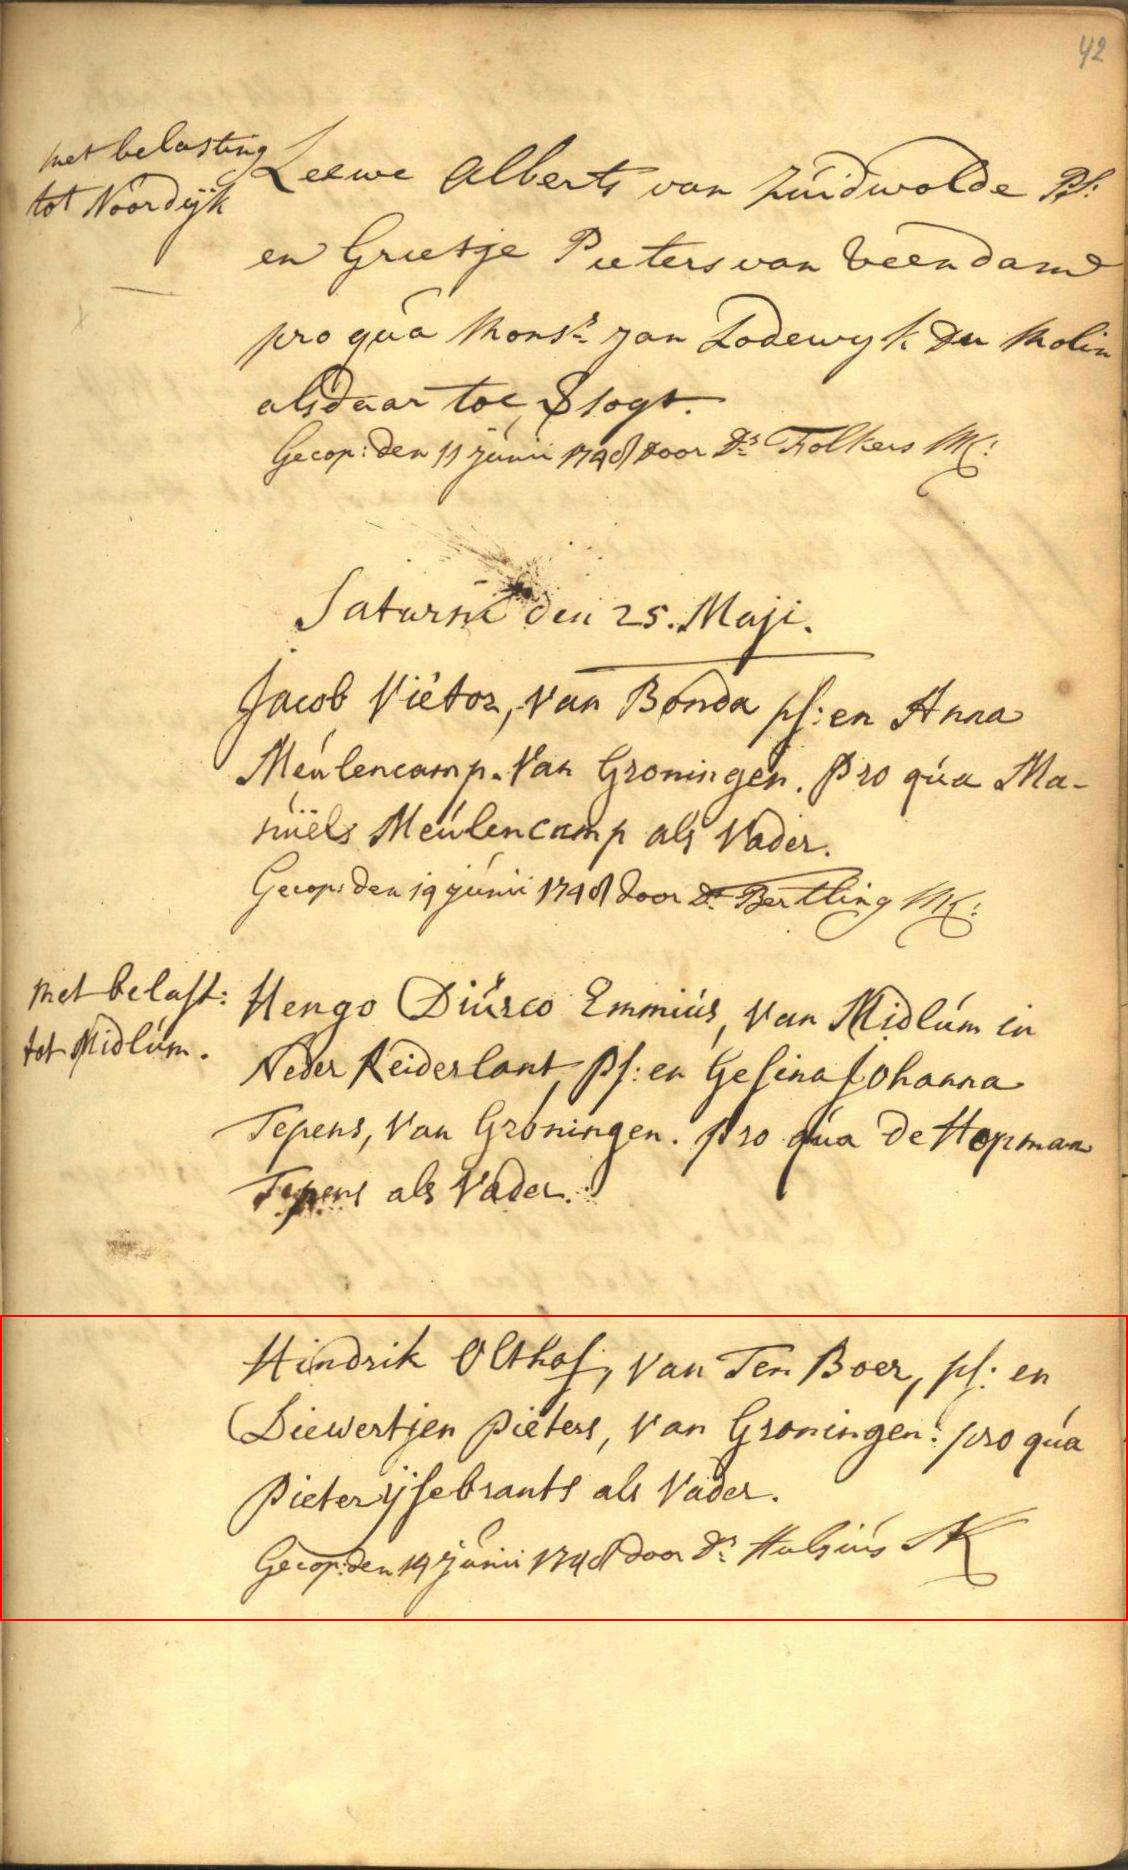 42
met belasting
tot Noordijk
Leewe Alberts van Zuidwolde Ps:
en Grietje Pieters van Veendam
pro qua Mons.r Jan Lodewyk du Molin
alsdaar toe Versogt.
Gecop: den 11 Junii 1748 door D.s Folkers M K:
Saturni den 25. Maji.
Jacob Viëtor, Van Bonda ps: en Anna
Meulencamp. Van Groningen. Pro qua Ma-
nuels Meulencamp als Vader.
Gecop: den 19 Junii 1748 door D.s Bertling M K:
Met belast:
tot Midlum.
Hengo Diurco Emmius, Van Midlum in
Neder Reiderlant, Ps: en Gesina Johanna
Tepens, Van Groningen. pro qua de Hopman
Tepens als Vader.
Hindrik Olthof, Van Ten Boer, ps: en
Diewertjen Pieters, Van Groningen: pro qua
Pieter ijsebrants als Vader.
Gecop: den 14 Junii 1748 door D.s Hulsius